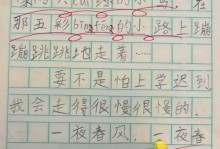 那五彩bīnfēn的小路上蹦
蹦跳跳地走着……
要不是怕上学迟到
我会走得很慢很慢的.
一夜春风,一夜春